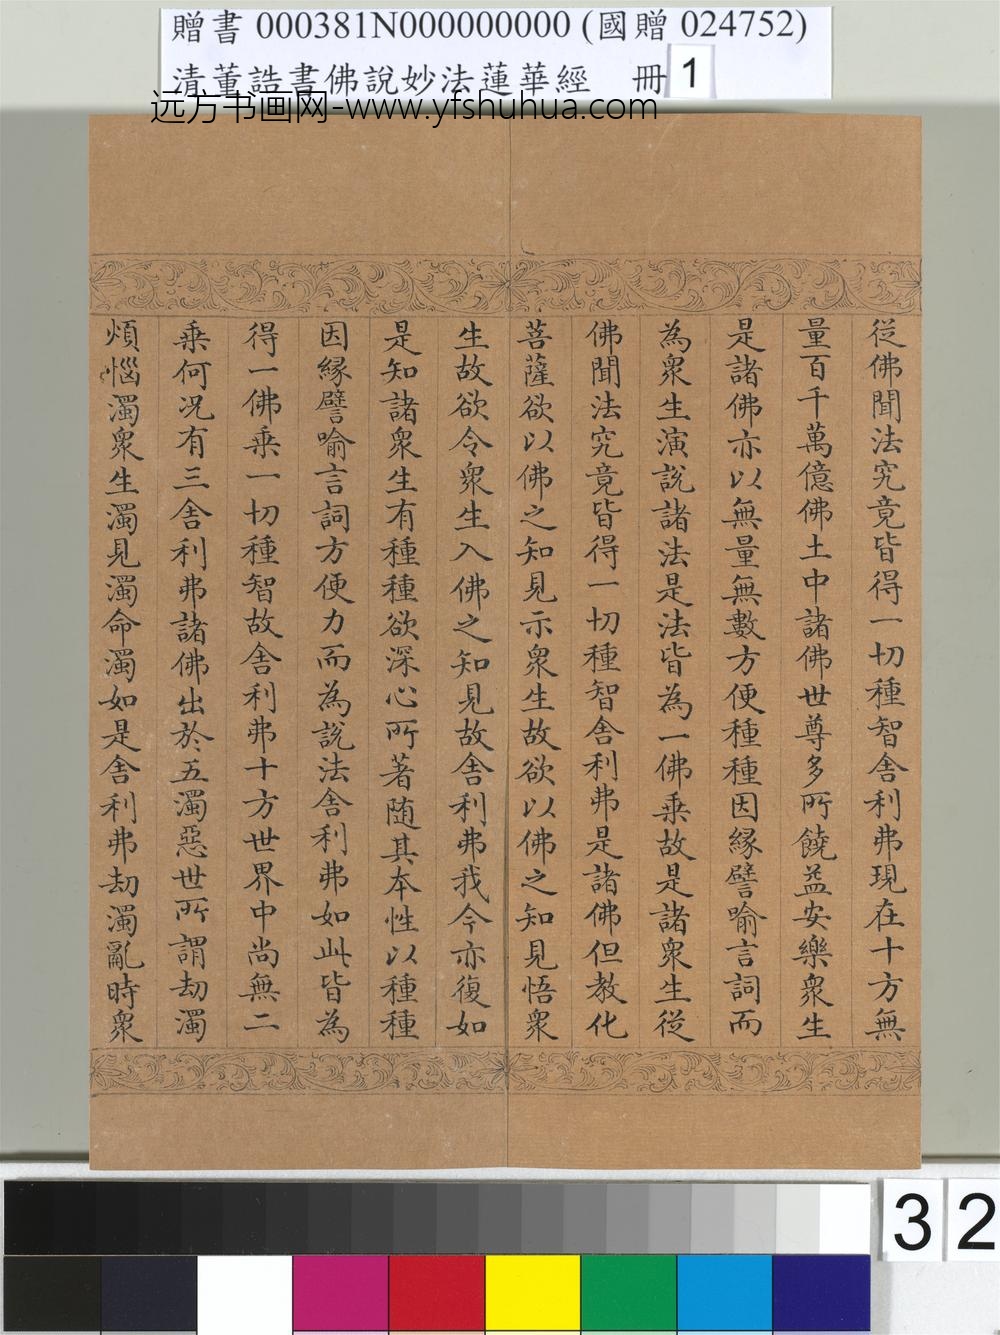 贈書 000381N000000000 (國贈 024752)
清董誥書佛說妙法蓮華經 冊 1
远方书画网-www.yfshuhua.com
從佛聞法究竟皆得一切種智舍利弗現在十方無
量百千萬億佛土中諸佛世尊多所饒益安樂衆生
是諸佛亦以無量無數方便種種因緣譬喻言詞而
為衆生演說諸法是法皆為一佛乗故是諸衆生從
佛聞法究竟皆得一切種智舍利弗是諸佛但教化
菩薩欲以佛之知見示衆生故欲以佛之知見悟衆
生故欲令衆生入佛之知見故舍利弗我今亦復如
是知諸衆生有種種欲深心所著随其本性以種種
因緣譬喻言詞方便力而為說法舍利弗如此皆為
得一佛乗一切種智故舍利弗十方世界中尚無二
乗何況有三舍利弗諸佛出於五濁惡世所謂劫濁
煩惱濁衆生濁見濁命濁如是舍利弗劫濁亂時衆
32